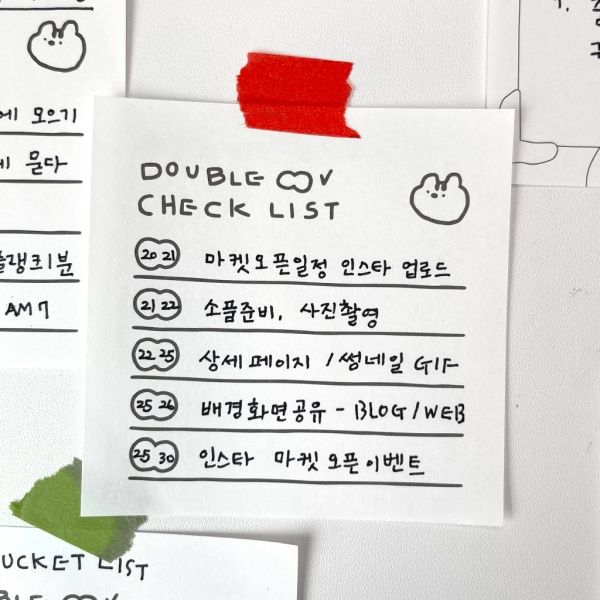 에 모으기
 묻다
플랭크1분
AM7
DOUBLE
CHECK LIST
20 21 마켓오픈일정 인스타 업로드
21 22 소품준비, 사진촬영
22 25 상세페이지 / 썸네일 GIF
25 26 배경화면공유 - BLOG/WEB
25 30 인스타 마켓오픈이벤트
BUCKET LIST